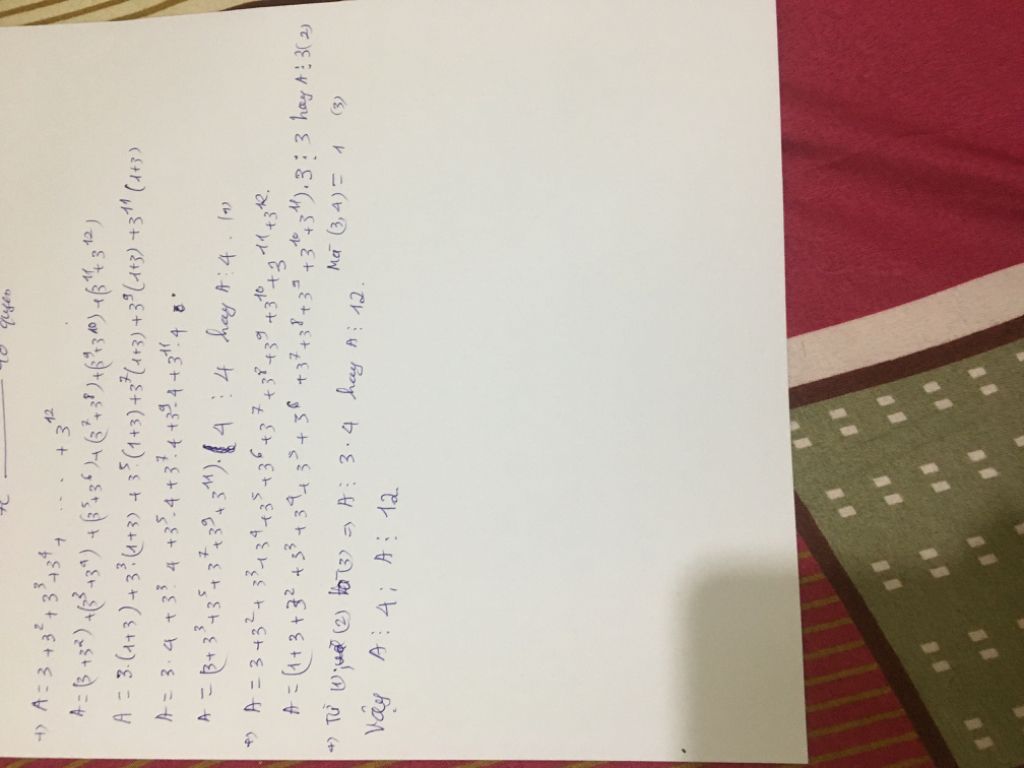 +) A = 3 + 3² + 3³ + 3⁴ + .... + 3¹²
A = (3 + 3²) + (3³ + 3⁴) + (3⁵ + 3⁶) + (3⁷ + 3⁸) + (3⁹ + 3¹⁰) + (3¹¹ + 3¹²)
A = 3.(1+3) + 3³.(1+3) + 3⁵.(1+3) + 3⁷(1+3) + 3⁹(1+3) + 3¹¹(1+3)
A = 3.4 + 3³.4 + 3⁵.4 + 3⁷.4 + 3⁹.4 + 3¹¹.4
A = (3 + 3³ + 3⁵ + 3⁷ + 3⁹ + 3¹¹).4 ⋮ 4 hay A ⋮ 4. (1)
+) A = 3 + 3² + 3³ + 3⁴ + 3⁵ + 3⁶ + 3⁷ + 3⁸ + 3⁹ + 3¹⁰ + 3¹¹ + 3¹².
A = (1 + 3 + 3² + 3³ + 3⁴ + 3⁵ + 3⁶ + 3⁷ + 3⁸ + 3⁹ + 3¹⁰ + 3¹¹).3 ⋮ 3 hay A ⋮ 3 (2)
Mà (3,4) = 1 (3)
+) Từ (1); (2) và (3) ⇒ A ⋮ 3.4 hay A ⋮ 12.
Vậy A ⋮ 4; A ⋮ 12